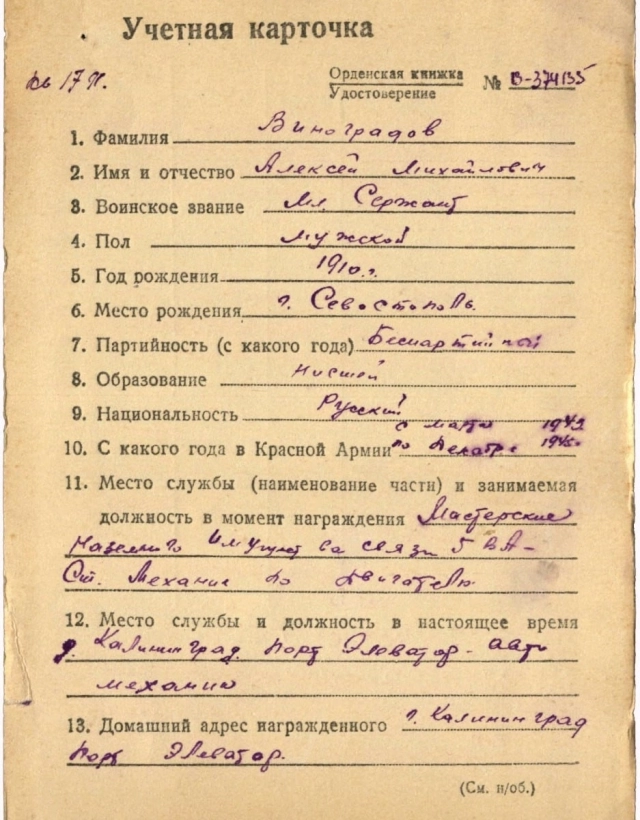 Учетная карточка
Орденская книжка
Удостоверение № В-374135
1. Фамилия Виноградов
2. Имя и отчество Алексей Михайлович
3. Воинское звание Мл. Сержант
4. Пол мужской
5. Год рождения 1910 г.
6. Место рождения г. Севостополь.
7. Партийность (с какого года) Беспартийный
8. Образование низшей
9. Национальность Русский
с марта 1942
10. С какого года в Красной Армии по Декабрь 1945
11. Место службы (наименование части) и занимаемая
должность в момент награждения Мастерские
Наземного имущества связи 5 ВА -
Ст. Механик по двигателю
12. Место службы и должность в настоящее время
г. Калининград. порт Элеватор - авто
механик
13. Домашний адрес награжденного г. Калининград
порт Элеватор.
(См. н/об.)